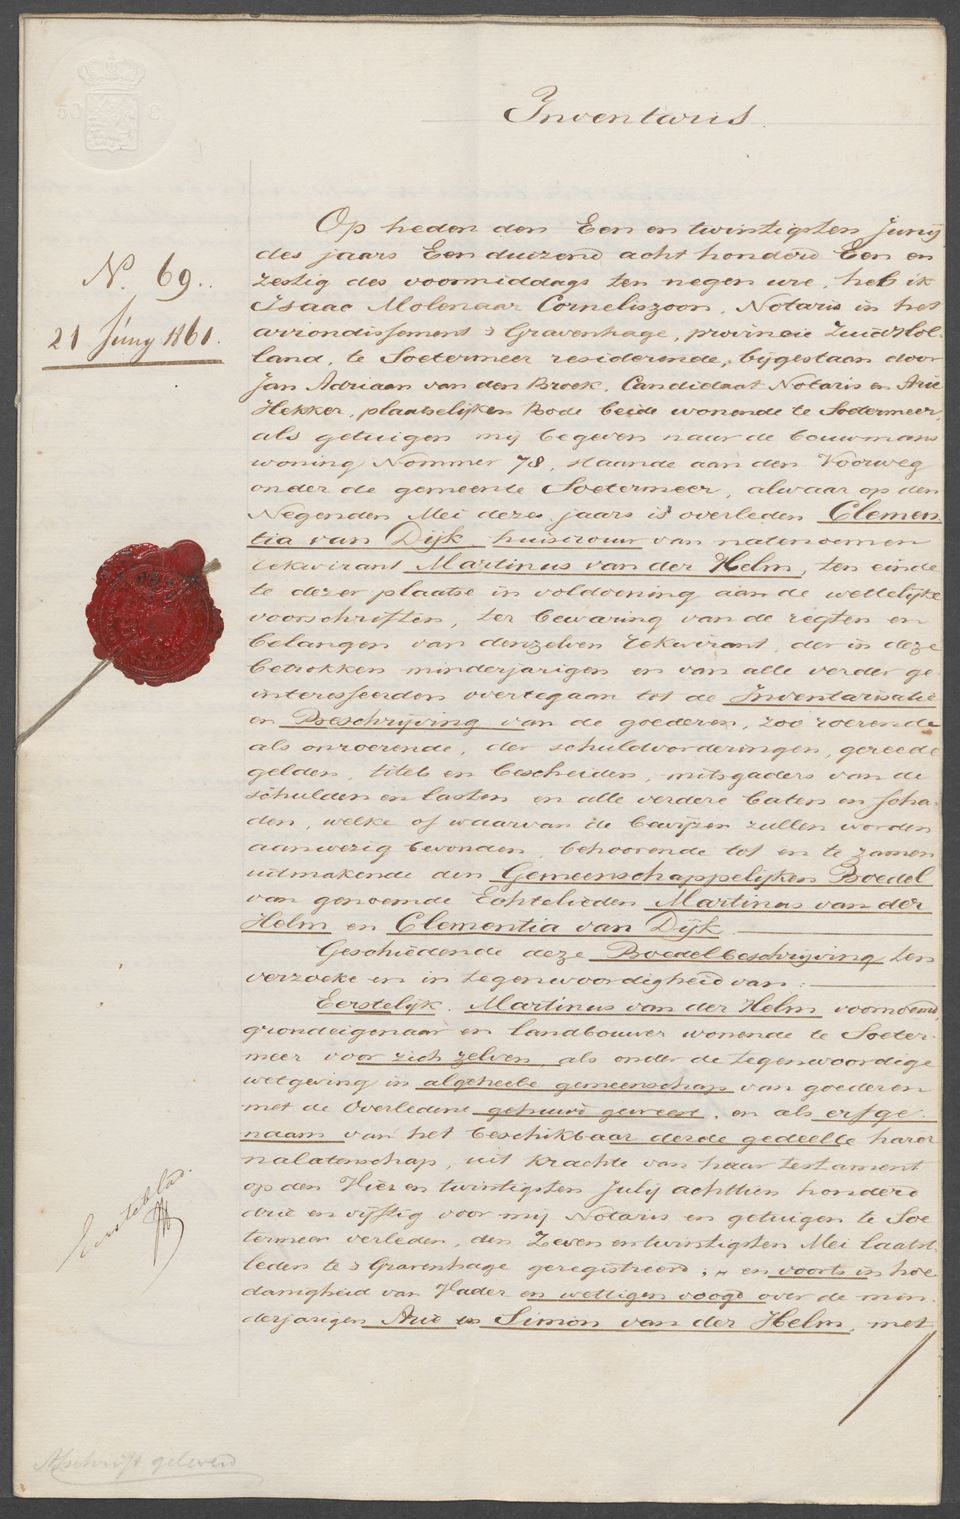 50 C
Inventaris.
N. 69..
21 Juny 1861.
Op heden den Een en twintigsten Junij
des jaars Een duizend acht honderd Een en
zestig des voormiddags ten negen ure, heb ik
Isaac Molenaar Corneliszoon, Notaris in het
arrondissement 's Gravenhage, provincie Zuid Hol-
land, te Soetermeer residerende, bijgestaan door
Jan Adriaan van den Broek, Candidaat Notaris en Arie
Hekker, plaatselijken Bode beide wonende te Soetermeer,
als getuigen mij begeven naar de bouwmans
woning Nommer 78, staande aan den Voorweg
onder de gemeente Soetermeer, alwaar op den
Negenden Mei dezes jaars is overleden Clemen-
tia van Dijk, huisvrouw van natenoemen
rekwirant Martinus van der Helm, ten einde
te dezer plaatse in voldoening aan de wettelijke
voorschriften, ter bewaring van de regten en
belangen van denzelven rekwirant, der in deze
betrokken minderjarigen en van alle verder ge-
interesseerden overtegaan tot de Inventarisatie
en Beschrijving van de goederen, zoo roerende
als onroerende, der schuldvorderingen, gereede
gelden, titels en bescheiden, mitsgaders van de
schulden en lasten en alle verdere baten en scha-
den, welke of waarvan de bewijzen zullen worden
aanwezig bevonden, behoorende tot en te zamen
uitmakende den Gemeenschappelijken Boedel
van genoemde Echtelieden Martinus van der
Helm en Clementia van Dijk.
Geschiedende deze Boedelbeschrijving ten
verzoeke en in tegenwoordigheid van:
Eerstelijk. Martinus van der Helm voornoemd,
grondeigenaar en landbouwer wonende te Soeter-
meer voor zich zelven, als onder de tegenwoordige
wetgeving in algeheele gemeenschap van goederen
met de Overledene gehuwd geweest, en als erfge-
naam van het beschikbaar derde gedeelte harer
nalatenschap, uit krachte van haar testament
op den Vier en twintigsten Julij achttien honderd
drie en vijftig voor mij Notaris en getuigen te Soe-
termeer verleden, den Zeven en twintigsten Mei laatst-
leden te 's Gravenhage geregistreerd; en voorts in hoe-
danigheid van Vader en wettigen voogd over de min-
derjarigen Arie en Simon van der Helm, met
Eersteblad.
Afschrift geleverd